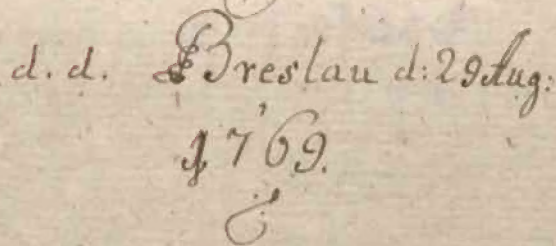 d. d. Breslau d: 29 Aug:
1769.